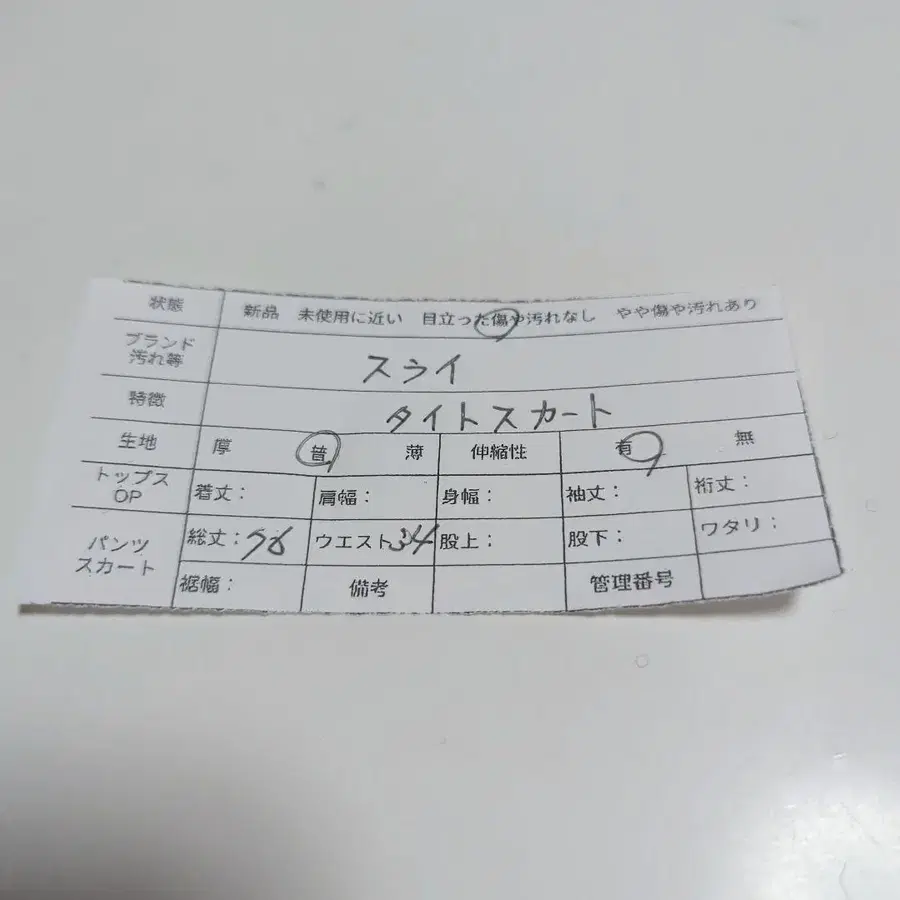 状態 新品 未使用に近い 目立った傷や汚れなし やや傷や汚れあり
ブランド
汚れ等 スライ
特徴 タイトスカート
生地 厚 普 薄 伸縮性 有 無
トップス
OP 着丈: 肩幅: 身幅: 袖丈: 裄丈:
パンツ
スカート 総丈: ウエスト34 股上: 股下: ワタリ:
裾幅: 備考 管理番号